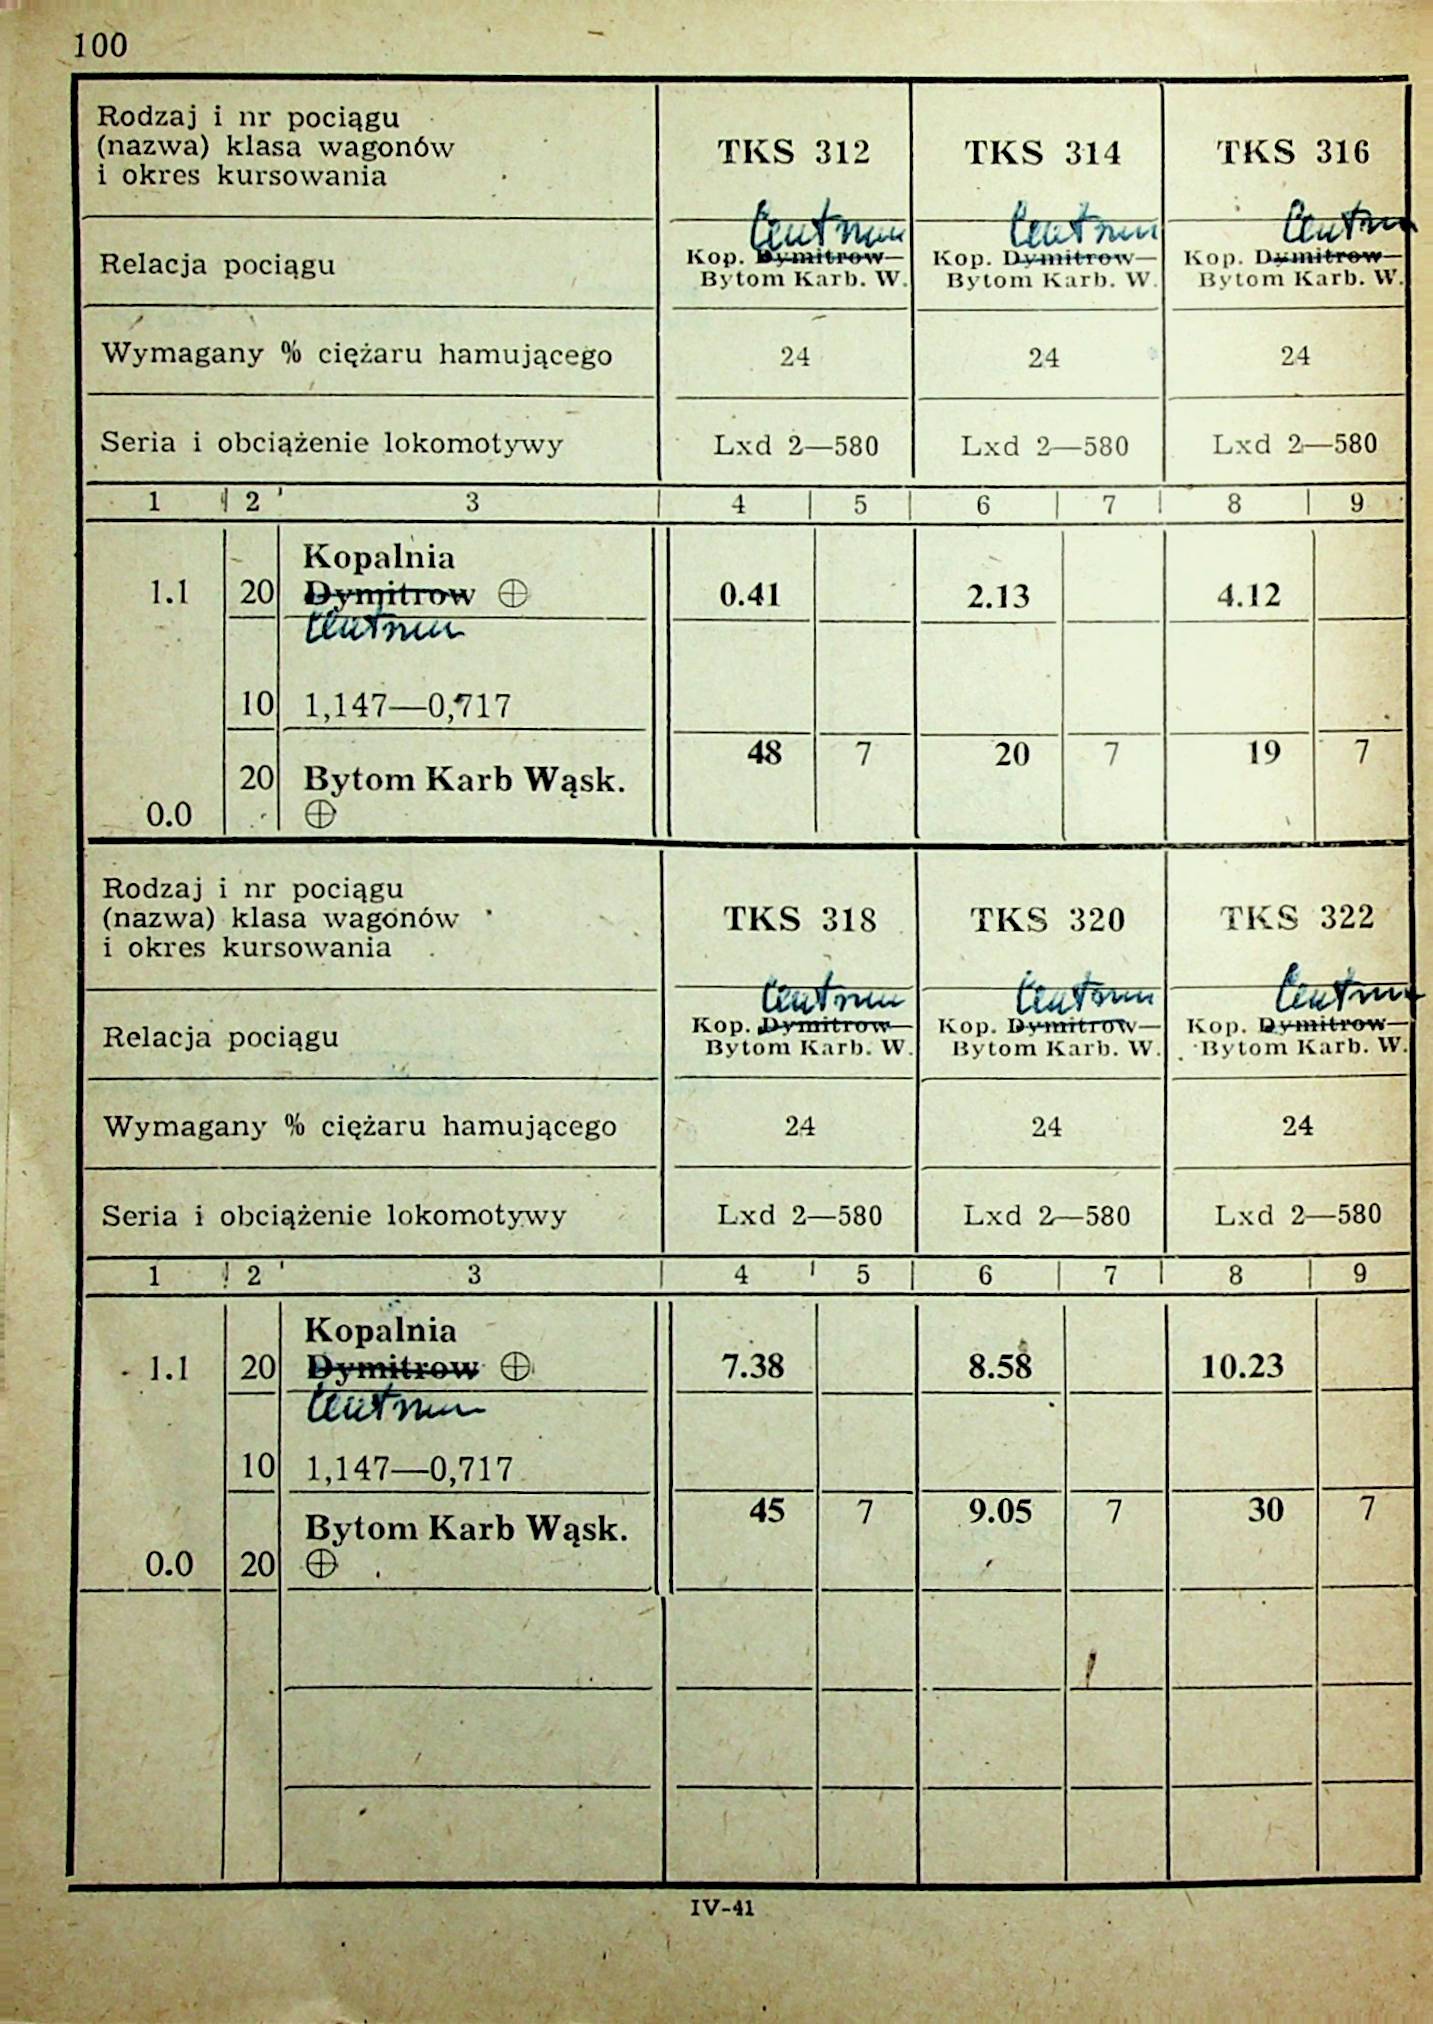 100
Rodzaj i nr pociągu
(nazwa) klasa wagonów
i okres kursowania
TKS 312 TKS 314 TKS 316
Centrum Centrum Centrum
Relacja pociągu
Kop. Dymitrow— Kop. Dymitrow— Kop. Dymitrow—
Bytom Karb. W. Bytom Karb. W. Bytom Karb. W.
Wymagany % ciężaru hamującego 24 24 24
Seria i obciążenie lokomotywy Lxd 2—580 Lxd 2—580 Lxd 2—580
1 2 3 4 5 6 7 8 9
Kopalnia
1.1 20 Dymitrow ⊕ 0.41 2.13 4.12
Centrum
10 1,147—0,717
48 7 20 7 19 7
20 Bytom Karb Wąsk.
0.0 ⊕
Rodzaj i nr pociągu
(nazwa) klasa wagonów
i okres kursowania
TKS 318 TKS 320 TKS 322
Centrum Centrum Centrum
Relacja pociągu
Kop. Dymitrow— Kop. Dymitrow— Kop. Dymitrow—
Bytom Karb. W. Bytom Karb. W. Bytom Karb. W.
Wymagany % ciężaru hamującego 24 24 24
Seria i obciążenie lokomotywy Lxd 2—580 Lxd 2—580 Lxd 2—580
1 2 3 4 5 6 7 8 9
Kopalnia
1.1 20 Dymitrow ⊕ 7.38 8.58 10.23
Centrum
10 1,147—0,717
45 7 9.05 7 30 7
Bytom Karb Wąsk.
0.0 20 ⊕
IV-41